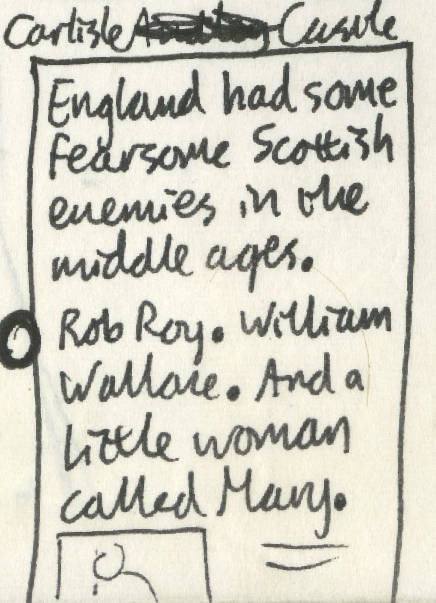 Carlisle Castle
England had some
fearsome Scottish
enemies in the
middle ages.
Rob Roy. William
Wallace. And a
little woman
called Mary.